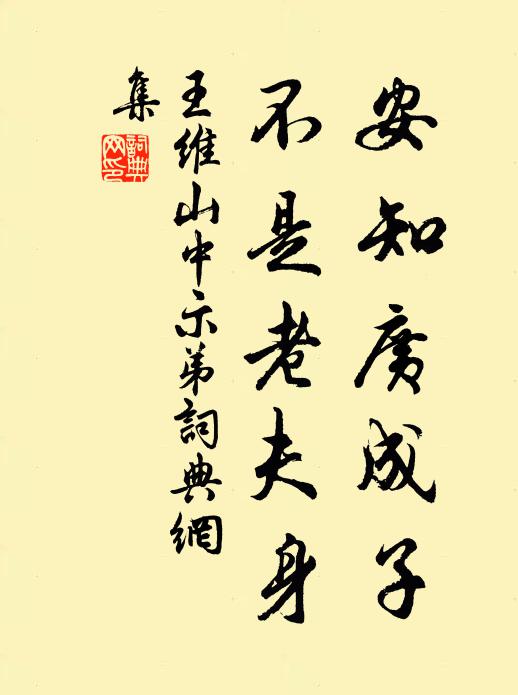 安知廣成子
不是老夫身
王維山中示弟詞典網
集
詞典網印